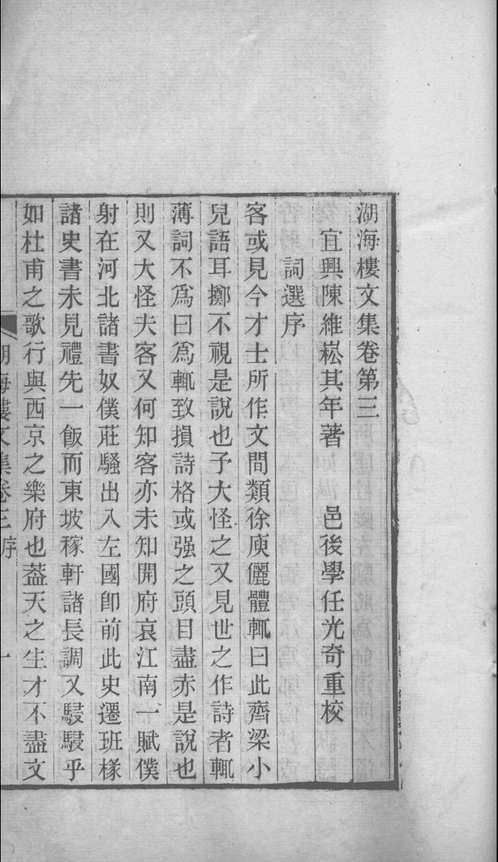 湖海樓文集卷第三
宜興陳維崧其年著　邑後學任光奇重校
詞選序
客或見今才士所作文間類徐庾儷體輒曰此齊梁小
兒語耳擲不視是說也予大怪之又見世之作詩者輒
薄詞不爲曰爲輒致損詩格或强之頭目盡赤是說也
則又大怪夫客又何知客亦未知開府哀江南一賦僕
射在河北諸書奴僕莊騷出入左國卽前此史遷班椽
諸史書未見禮先一飯而東坡稼軒諸長調又駸駸乎
如杜甫之歌行與西京之樂府也葢天之生才不盡文
湖海樓文集卷三 序 一